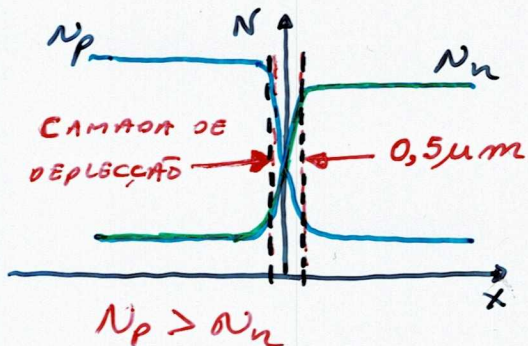 Np
N
Nn
CAMADA DE
DEPLECÇÃO
0,5μm
x
Np > Nn